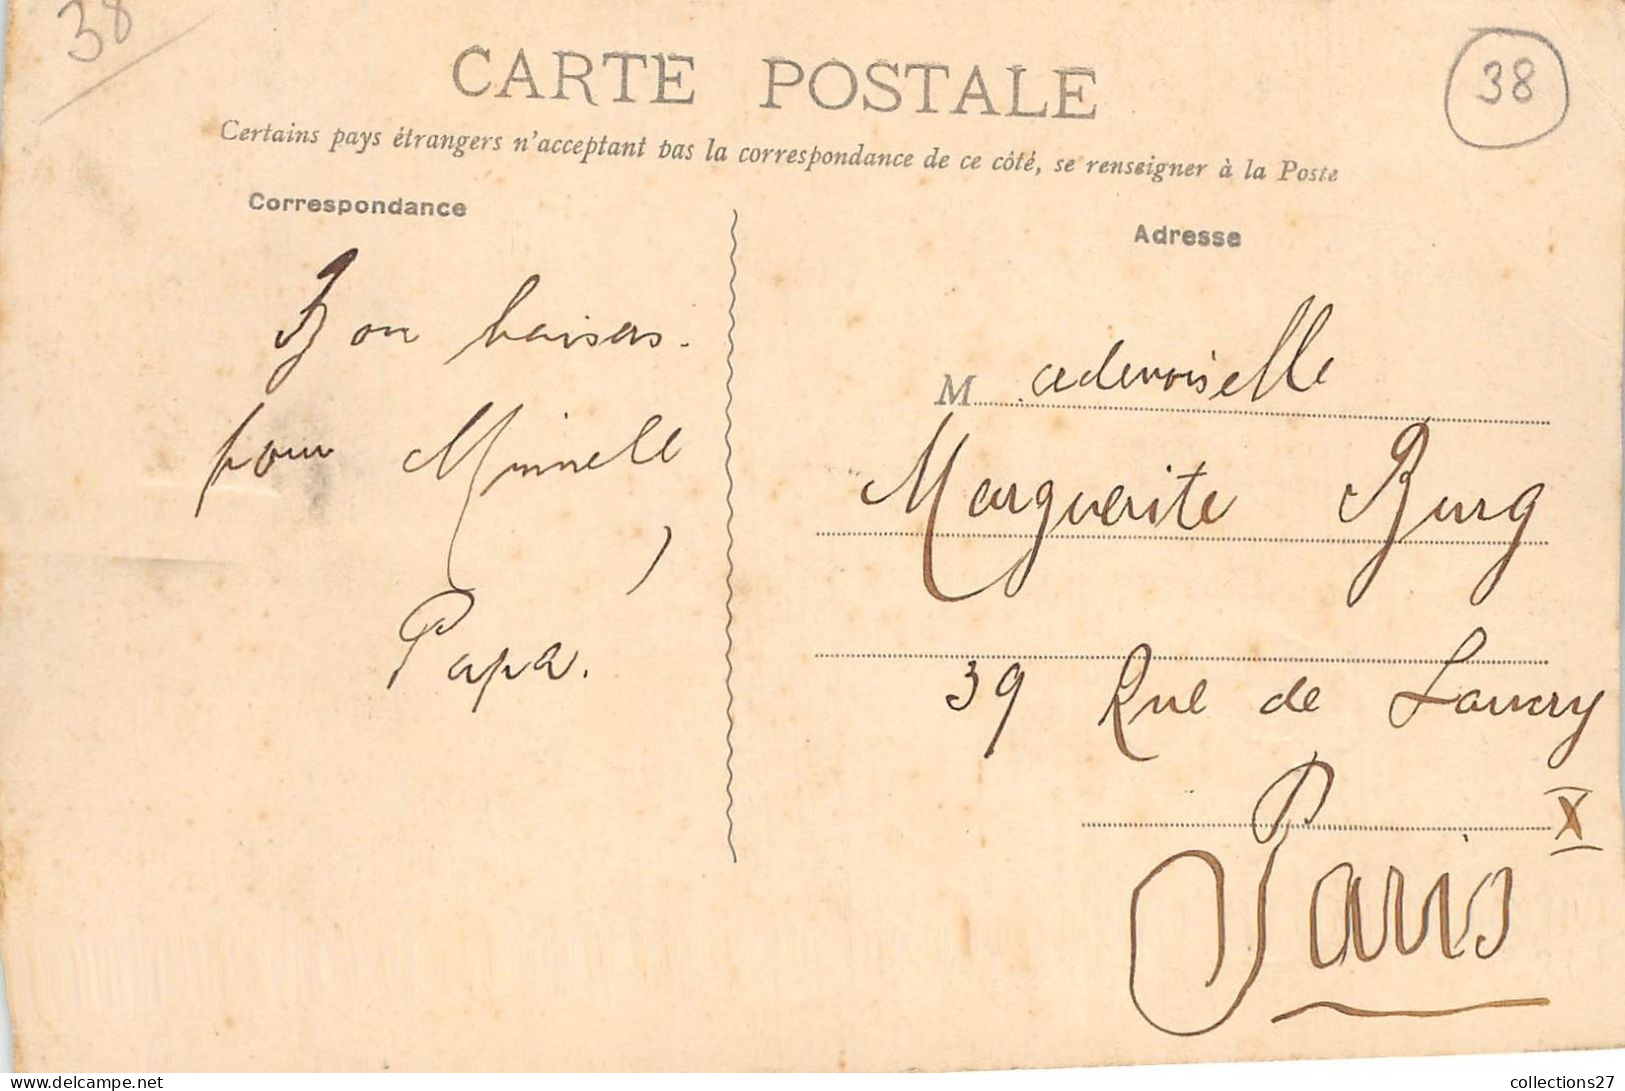 38
CARTE POSTALE
38
Certains pays étrangers n'acceptant pas la correspondance de ce côté, se renseigner à la Poste
Correspondance
Bon baisers.
pour Mimele
Papa.
Adresse
Mademoiselle
Marguerite Burg
39 Rue de Lancry
X
Paris
collections27